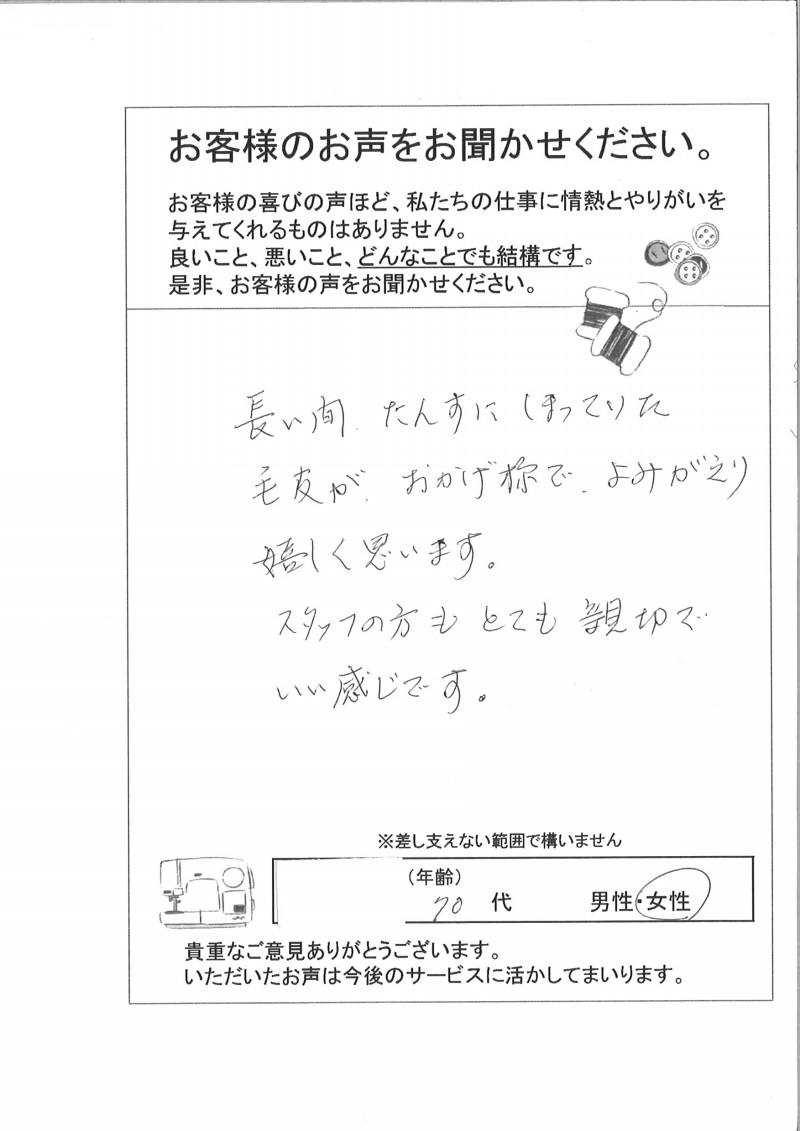 お客様のお声をお聞かせください。
お客様の喜びの声ほど、私たちの仕事に情熱とやりがいを
与えてくれるものはありません。
良いこと、悪いこと、どんなことでも結構です。
是非、お客様の声をお聞かせください。
長い間、たんすにしまってりた
毛皮が、おかげ様で、よみがえり
嬉しく思います。
スタッフの方もとても親切で
いい感じです。
※差し支えない範囲で構いません
（年齢）
70代 男性・女性
貴重なご意見ありがとうございます。
いただいたお声は今後のサービスに活かしてまいります。